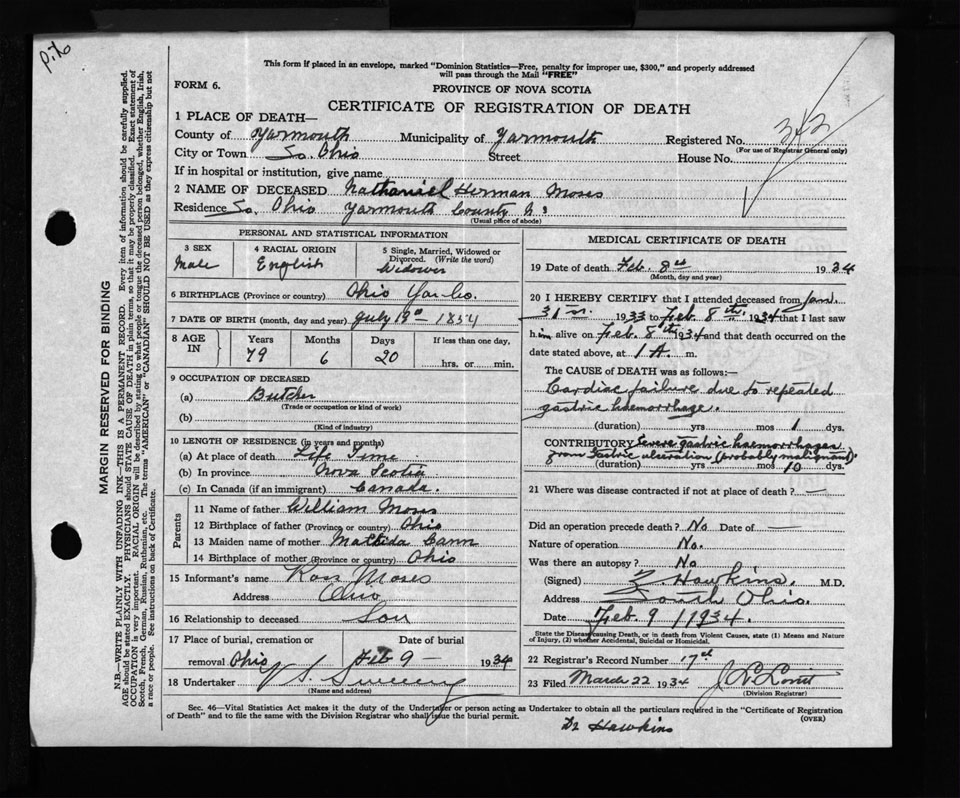 This form if placed in an envelope, marked "Dominion Statistics—Free, penalty for improper use, $300," and properly addressed
will pass through the Mail "FREE"
FORM 6.
PROVINCE OF NOVA SCOTIA
CERTIFICATE OF REGISTRATION OF DEATH
1 PLACE OF DEATH—
County of Yarmouth Municipality of Yarmouth Registered No. 343
(For use of Registrar General only)
City or Town So. Ohio Street House No.
If in hospital or institution, give name
2 NAME OF DECEASED Nathaniel Herman Moses
Residence So. Ohio Yarmouth County N S
(Usual place of abode)
PERSONAL AND STATISTICAL INFORMATION
3 SEX
Male
4 RACIAL ORIGIN
English
5 Single, Married, Widowed or
Divorced. (Write the word)
Widower
6 BIRTHPLACE (Province or country) Ohio Yar. Co.
7 DATE OF BIRTH (month, day and year) July 19 - 1854
8 AGE IN
Years Months Days If less than one day,
79 6 20 hrs. or min.
9 OCCUPATION OF DECEASED
(a) Butcher
(Trade or occupation or kind of work)
(b)
(Kind of industry)
10 LENGTH OF RESIDENCE (in years and months)
(a) At place of death Life Time
(b) In province Nova Scotia
(c) In Canada (if an immigrant) Canada.
Parents
11 Name of father William Moses
12 Birthplace of father (Province or country) Ohio
13 Maiden name of mother Matilda Cann
14 Birthplace of mother (Province or country) Ohio
15 Informant's name Ross Moses
Address Ohio
16 Relationship to deceased Son
17 Place of burial, cremation or Date of burial
removal Ohio Feb 9 - 1934
18 Undertaker V. S. Sweeny
(Name and address)
MEDICAL CERTIFICATE OF DEATH
19 Date of death Feb. 8th 1934
(Month, day and year)
20 I HEREBY CERTIFY that I attended deceased from Jan.
31st. 1933 to Feb 8th. 1934 that I last saw
him alive on Feb. 8th 1934 and that death occurred on the
date stated above, at 1 A. m.
The CAUSE of DEATH was as follows:—
Cardiac failure due to repeated
gastric haemorrhage.
(duration) yrs mos 1 dys.
CONTRIBUTORY Severe gastric haemorrhages
from Gastric ulceration (probably malignant)
(duration) yrs mos 10 dys.
21 Where was disease contracted if not at place of death? —
Did an operation precede death? No Date of —
Nature of operation No.
Was there an autopsy? No
(Signed) Hawkins. M.D.
Address South Ohio.
Date Feb. 9 / 1934.
State the Disease causing Death, or in death from Violent Causes, state (1) Means and Nature
of Injury, (2) whether Accidental, Suicidal or Homicidal.
22 Registrar's Record Number 17th
23 Filed March 22 1934
(Division Registrar)
Sec. 46—Vital Statistics Act makes it the duty of the Undertaker or person acting as Undertaker to obtain all the particulars required in the "Certificate of Registration
of Death" and to file the same with the Division Registrar who shall issue the burial permit.
(OVER)
Dr Hawkins
MARGIN RESERVED FOR BINDING
N.B.—WRITE PLAINLY WITH UNFADING INK—THIS IS A PERMANENT RECORD. Every item of information should be carefully supplied.
AGE should be stated EXACTLY. PHYSICIANS should STATE CAUSE OF DEATH in plain terms, so that it may be properly classified. Exact statement of
OCCUPATION is very important. RACIAL ORIGIN will be described by stating to what people or tongue the deceased person belonged, whether English, Irish,
Scotch, French, German, Russian, Ruthenian, etc. The terms "AMERICAN" or "CANADIAN" SHOULD NOT BE USED as they express citizenship but not
a race or people. See instructions on back of Certificate.